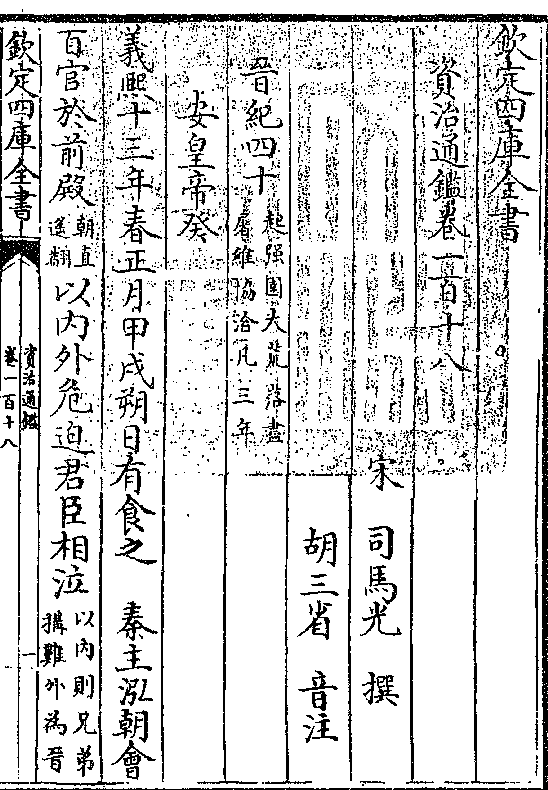 欽定四庫全書
資治通鑑卷一百十八
宋 司馬光 撰
胡三省 音注
晉紀四十
起强圉大荒落盡
屠維協洽凡三年
安皇帝癸
義熙十三年春正月甲戌朔日有食之 秦主泓朝會
百官於前殿
朝直
遙翻
以内外危迫君臣相泣
以内則兄弟
搆難外為晉
欽定四庫全書
資治通鑑
卷一百十八
一